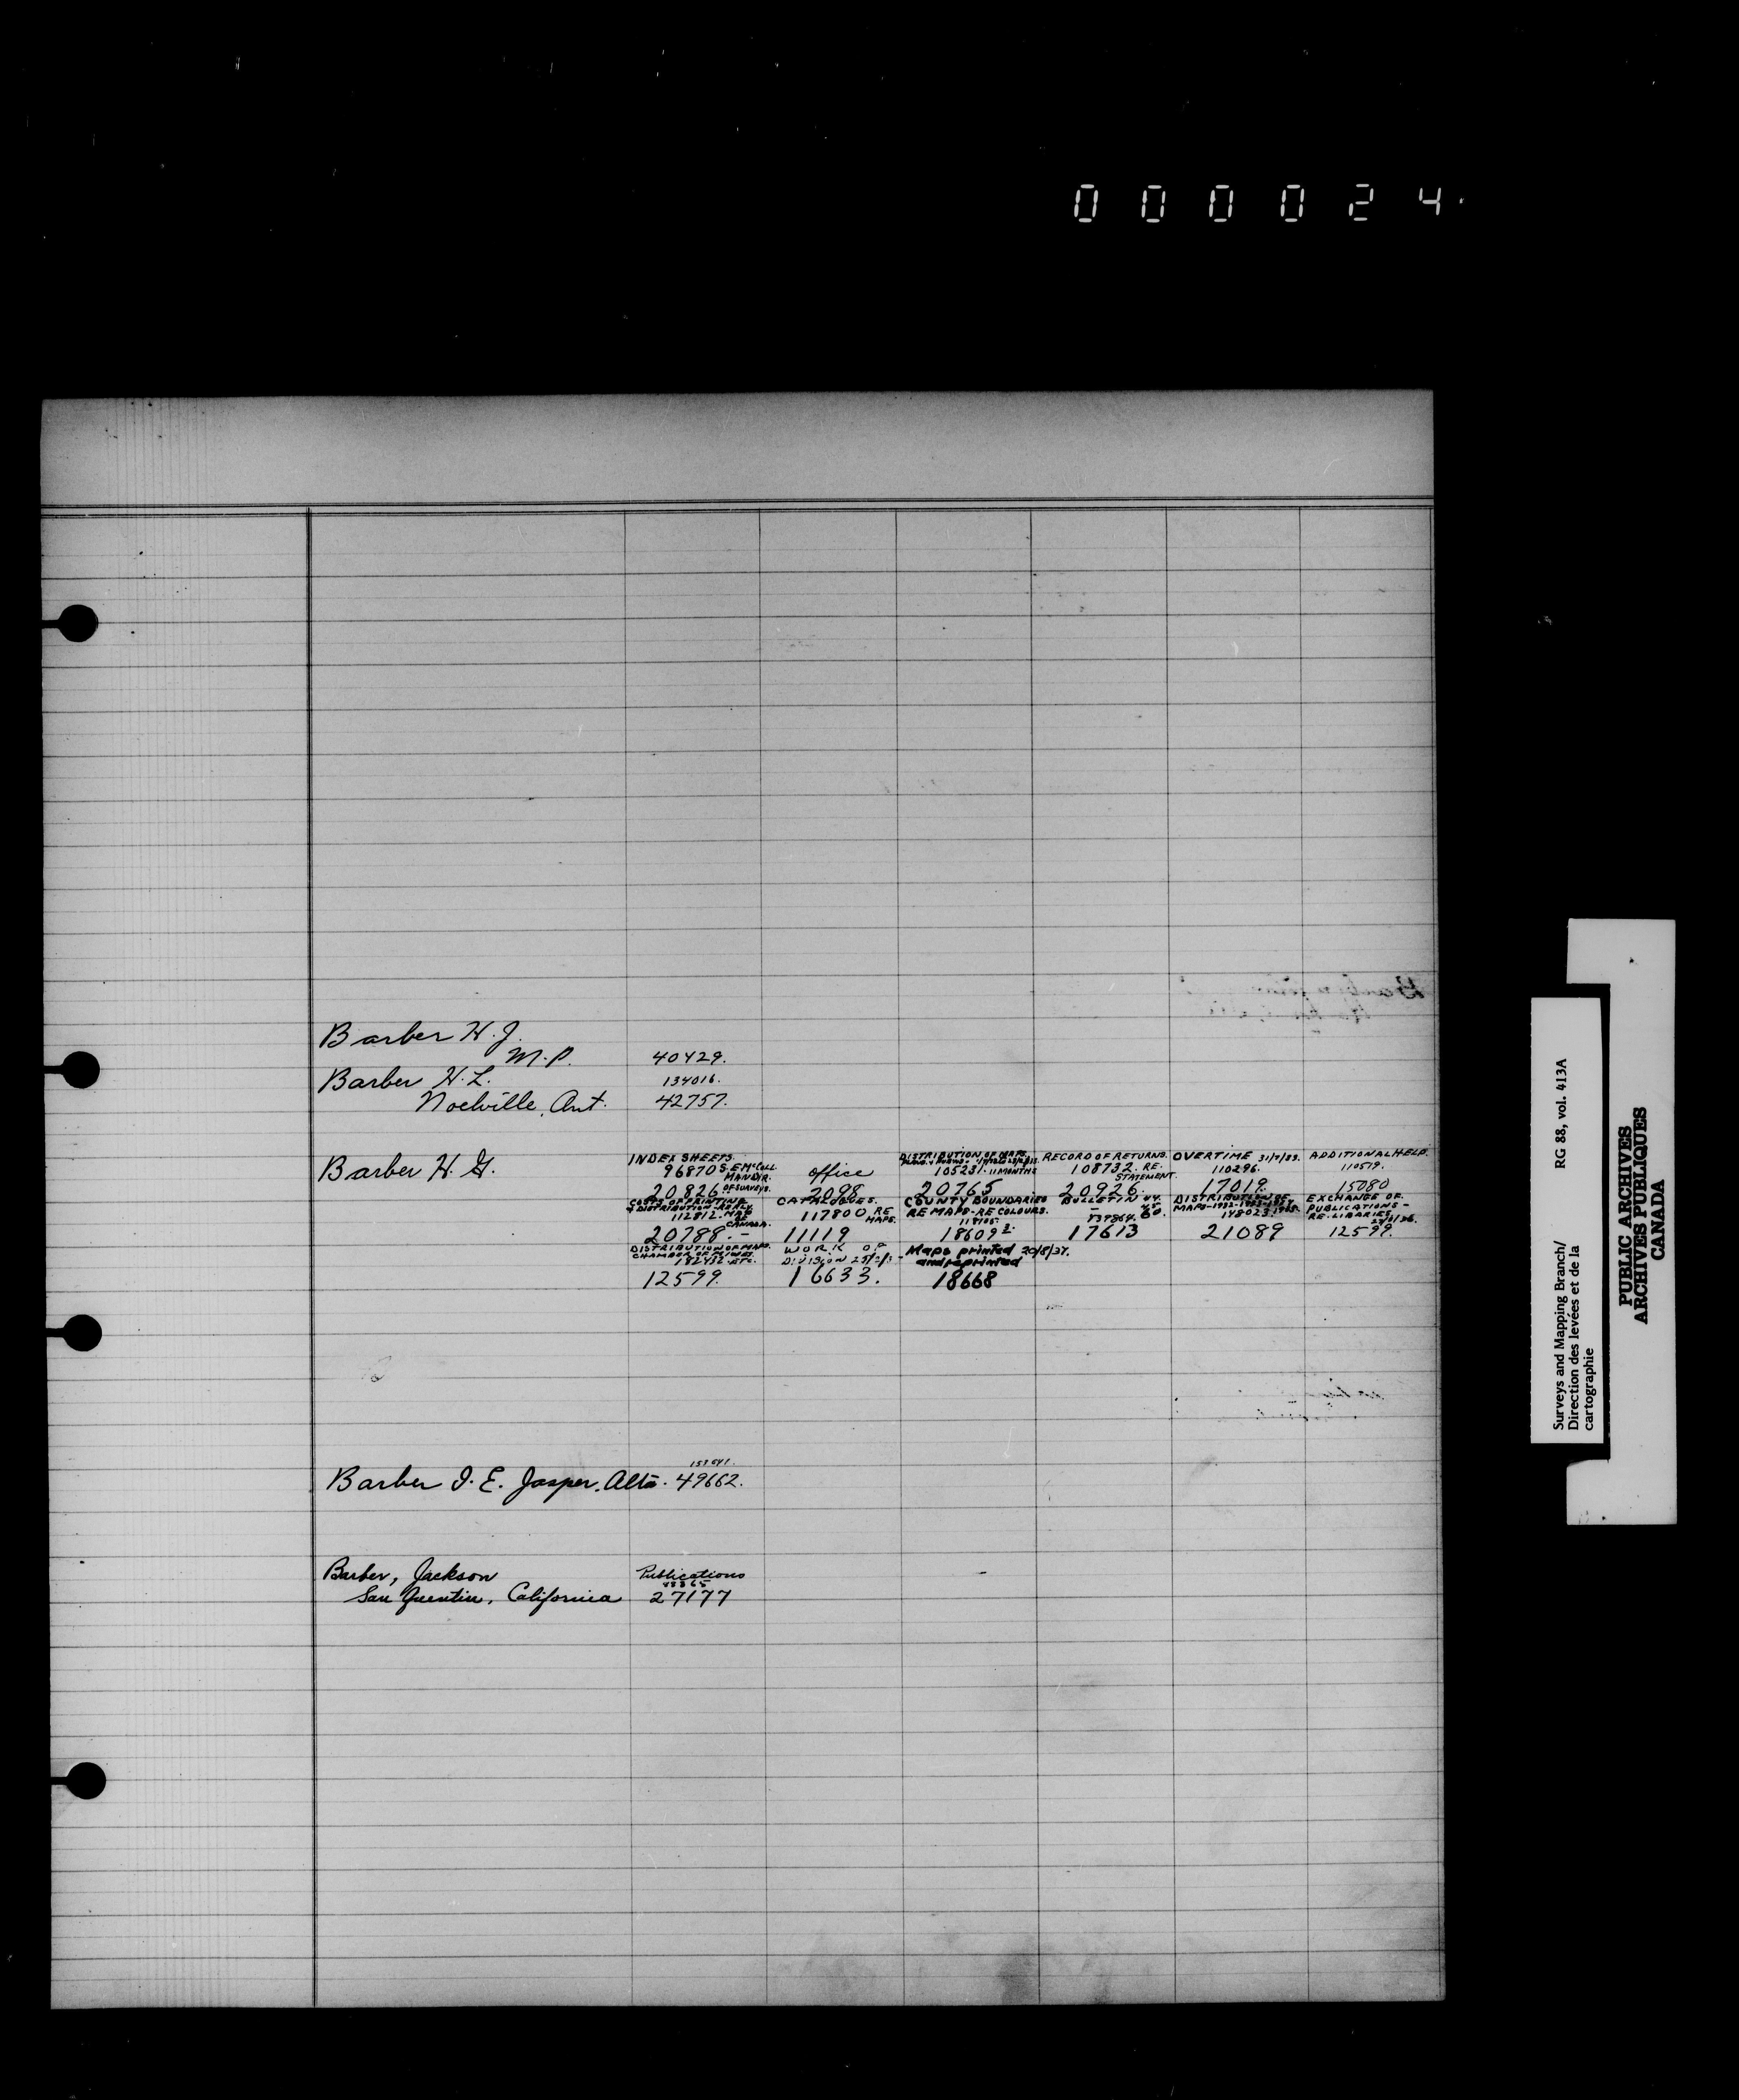 000024
Barber H. J.
M.P. 40429.
Barber H. L. 134016.
Noelville, Ont. 42757.
Barber H. G.
INDEX SHEETS.
96870 S.E. McColl
MAN DIR.
OF SURVEYS.
20826
office
2098
DISTRIBUTION OF MAPS,
105231. 11 MONTHS
20765
RECORD OF RETURNS.
108732. RE.
STATEMENT.
20926.
OVERTIME 31/7/33.
110296.
17019.
ADDITIONAL HELP.
110579.
15080
COSTS OF PRINTING
& DISTRIBUTION
112812. MAP
RE
CANADA.
20788.-
CATALOGUES.
117800 RE
MAPS.
11119
COUNTY BOUNDARIES
RE MAPS-RE COLOURS.
118105.
18609
BULLETIN
17613
DISTRIBUTION OF
148023.
21089
EXCHANGE OF
PUBLICATIONS -
RE. LIBARIES.
12599.
DISTRIBUTION OF MAPS.
CHAMBER OF MINES
182432. ETC.
12599.
WORK OF
DIVISION
16633.
Maps printed 20/8/37.
and reprinted
18668
Barber I. E. Jasper, Alta. 49662.
Barber, Jackson Publications
San Quentin, California 27177
Surveys and Mapping Branch/ RG 88, vol. 413A
Direction des levées et de la
cartographie
PUBLIC ARCHIVES
ARCHIVES PUBLIQUES
CANADA